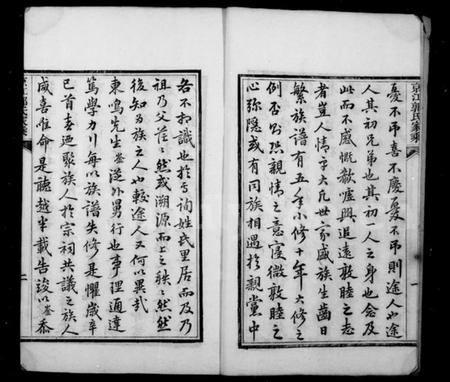 京江郭氏家乘
憂不弔喜不慶憂不弔則途人也途
人其初兄弟也其初一人之身也念及
此而不感慨歔嘘興追遠敦睦之志
者豈人情乎大凡世家盛族生齒日
繁族譜有五年小修十年大修之
例否則親情之意寖微敦睦之
心弥隱或有同族相遇於親黨中
一
各不相識也於焉詢姓氏里居而及乃
祖乃父茫然或溯源而言之
後知為族之人也較途人又何以異哉
東鳴先生逕外舅行也事理通達
篤學力行每以族譜失修是懼歲卒
已首春迺聚族人於宗祠共議之族人
咸喜唯命是聽越年載告竣以忝
二